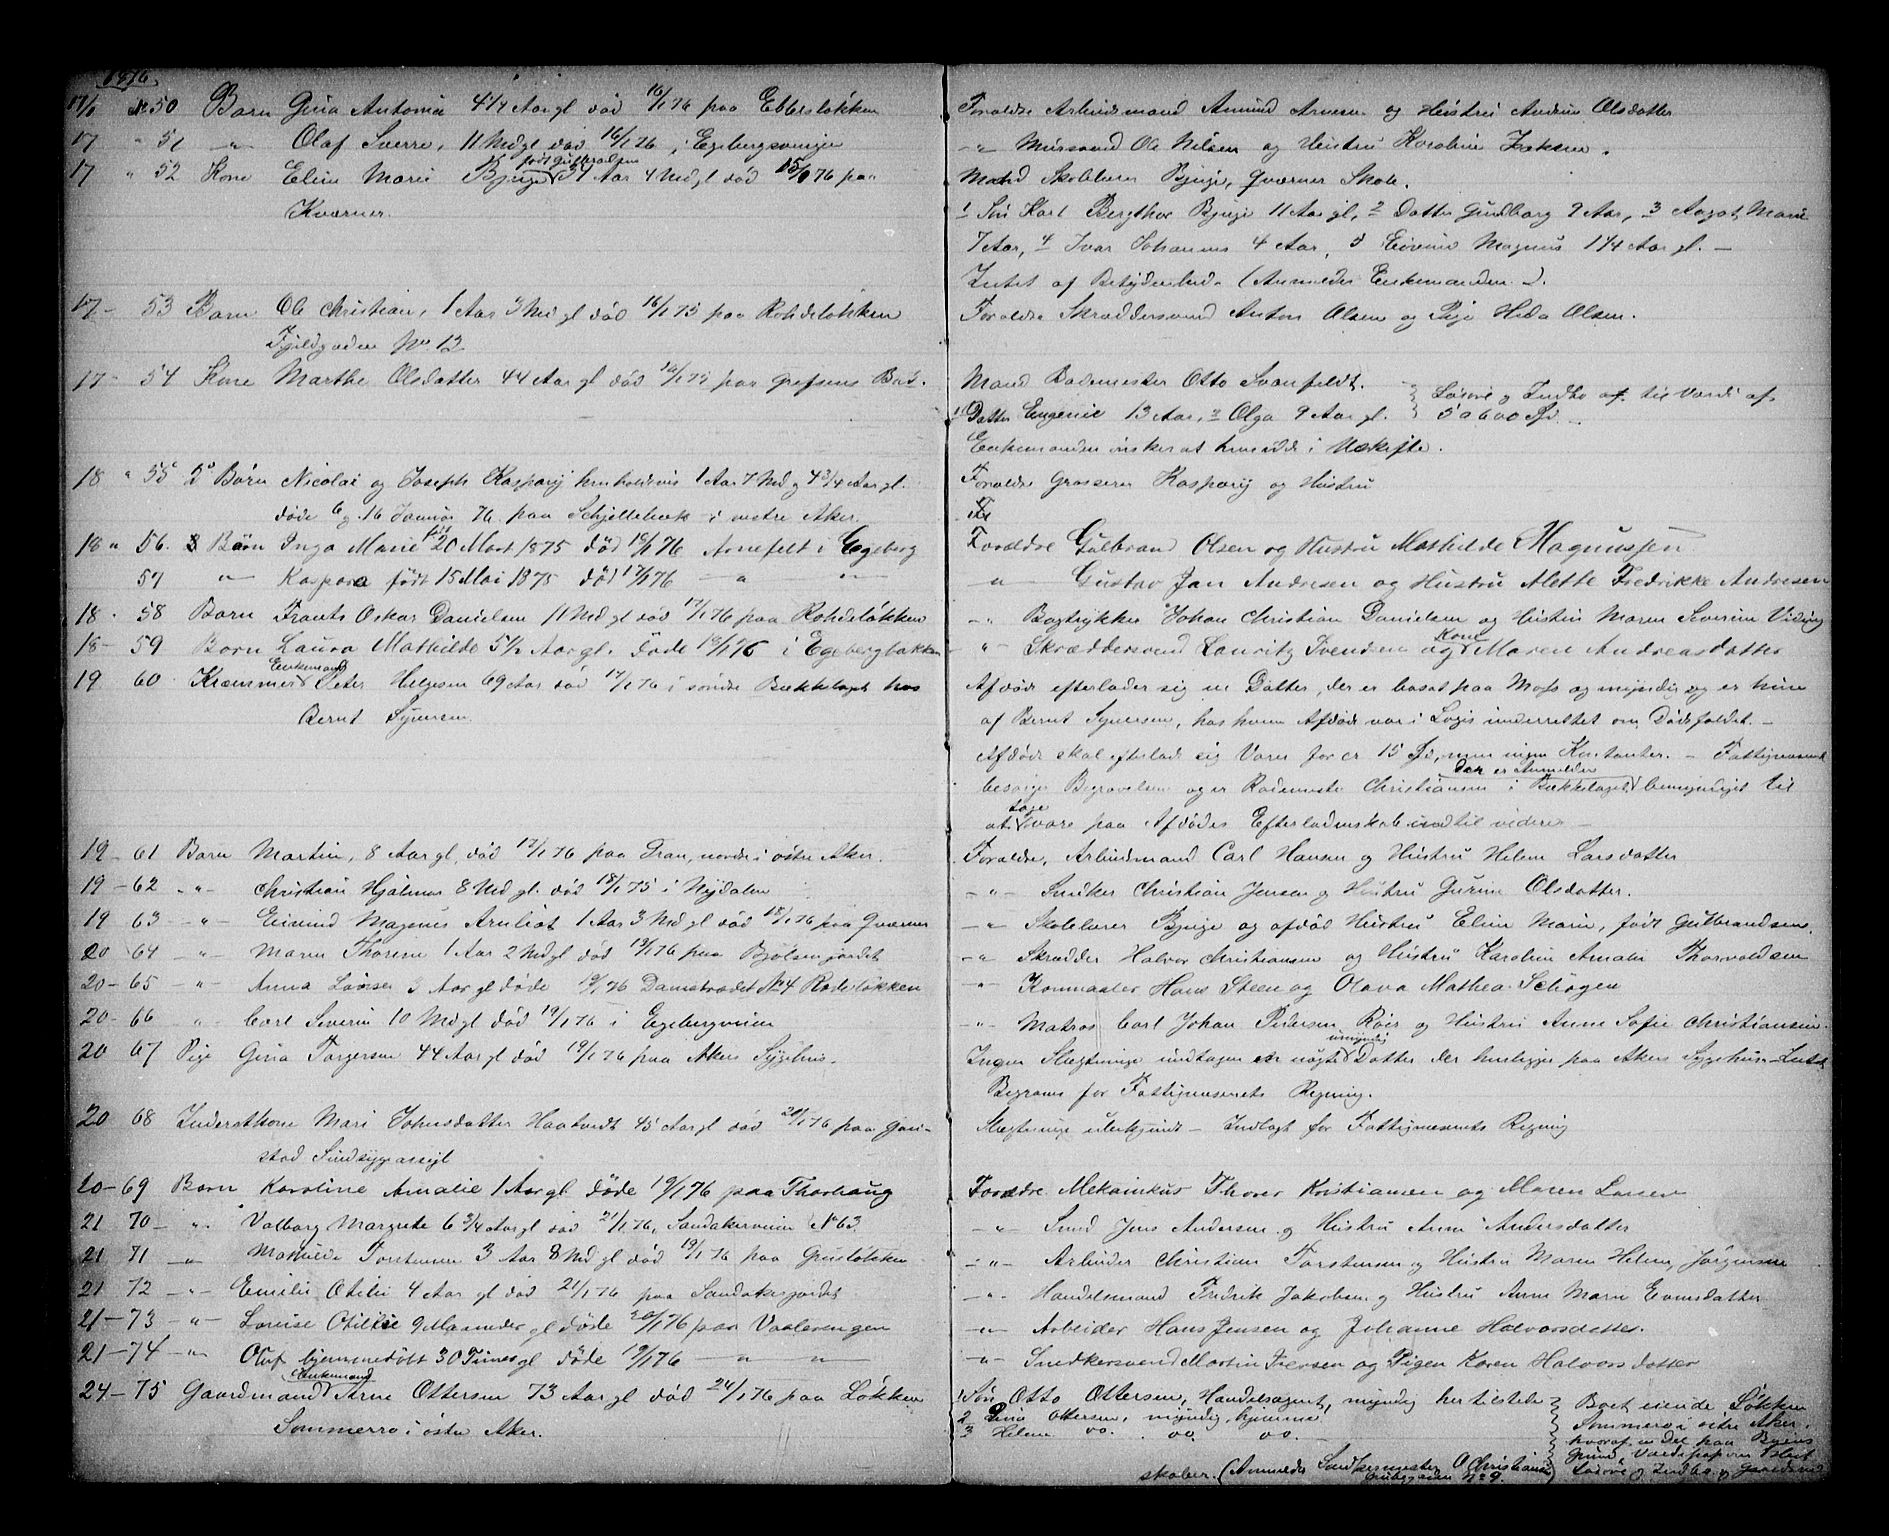 1876.
17/1 No 50 Barn Gina Antonia 4 1/4 Aar gl død 16/1 76 paa Ebbesløkken
17 " 51 — " — Olaf Sverre, 11 Md gl død 16/1 76 i Egebergveien
17 " 52 Kone Elin Marie Bjuge født Gulbrandsen 37 Aar 4 Md gl død 15/1 76 paa
Kværner.
17 - 53 Barn Ole Christian, 1 Aar 3 Md gl død 16/1 75 paa Rohdeløkken
Fjeldgaden No 12
17 - 54 Kone Marthe Olsdatter 44 Aar gl død paa Grefsens Bad.
18 " 55 Børn Nicolai og Joseph Kaspary henholdsvis 1 Aar 7 Md og 4 3/4 Aar gl.
døde 6 og 16 Januar 76 paa Schjøllebæk i vestre Aker
18 " 56. Børn Inga Marie født 20 Marts 1875 død 18/1 76 Arnefelt i Egeberg
57 — " — Kaspara født 15 Mai 1875 død 17/1 76 — " — — " —
18 - 58 Barn Frants Oskar Danielsen 11 Md gl død 17/1 76 paa Rohdeløkken
18 - 59 Barn Laura Mathilde 5 1/2 Aar gl. døde 18/1 76 i Egebergbakken
19 60 Kræmmer Enkemand Peter Helgesen 69 Aar død 17/1 76 i søndre Bækkelaget hos
Bernt Syversen.
19 - 61 Barn Martin, 8 Aar gl, død 17/1 76 paa Gran, nordre i østre Aker.
19 - 62 - " - Christian Hjalmar 8 Md gl. død 18/1 75 i Nydalen
19 63 — " — Eivind Magnus Arnliot 1 Aar 3 Md gl død 18/1 76 paa Qværner
20 64 — " — Maren Thorine 1 Aar 2 Md gl død 19/1 76 paa Bjølsenjordet
20 - 65 — " — Anna Lovise 3 Aar gl døde 19/1 76 Damstrædet No 4 Rodeløkken
20 - 66 " Carl Severin 10 Md gl død 19/1 76 i Egebergveien
20 67 Pige Gina Torgersen 44 Aar gl død 19/1 76 paa Akers Sygehus.
20 68 Inderstkone Mari Johnsdatter Haatvedt 45 Aar gl død 20/1 76 paa Gau-
stad Sindsygeasyl
20 - 69 Barn Karoline Amalie 1 Aar gl døde 19/1 76 paa Thorhaug
21 70 - " - Valborg Margrete 6 3/4 Aar gl død 21/1 76, Sandakerveien No 63
21 71 — " — Mathilde Torstensen 3 Aar 8 Md gl død 19/1 76 paa Grüsløkken
21 72 — " — Emilie Otilie 4 Aar gl død 21/1 76 paa Sandakerjordet
21 - 73 — " — Lovise Otilie 9 Maaneder gl døde 20/1 76 paa Vaalerengen
21 - 74 — " — Oluf hjemmedøbt 30 Timer gl døde 19/1 76 — " — — " —
24 - 75 Gaardmand Enkemand Arne Ottersen 73 Aar gl død 24/1 76 paa Løkken
Sommerro i østre Aker.
Forældre Arbeidsmand Amund Arnesen og Hustru Andrine Olsdatter
— " — Mursvend Ole Nilsen og Hustru Karoline
Mand Skolelærer Bjuge, Qværner Skole.
1 Søn Karl Bergthor Bjuge 11 Aar gl, 2 Datter Gundborg 9 Aar, 3 Aagot Marie
7 Aar, 4 Ivar Johannes 4 Aar, 5 Eivind Magnus 1 1/4 Aar gl. —
Intet af Betydenhed. (Anmelder Enkemanden.)
Forældre Skræddersvend Anton Olsen og Pige Hilda Olsen.
Mand Bademester Otto Svanfeldt.
1 Datter Eugenie 13 Aar, 2 Olga 9 Aar gl.
Løsøre og Indbo af til Værdi af
5 a 600 Spd.
Enkemanden ønsker at hensidde i Uskiftet.
Forældre Grosserer Kaspary og Hustru
Fo
Forældre Gulbrand Olsen og Hustru Mathilde Magnussen
— " — Gustav Jan Andresen og Hustru Mette Fredrikke Andresen
- " - Bogtrykker Johan Christian Danielsen og Hustru Maren Severine Viding
— " — Skræddersvend Lauritz Svendsen og Kone Maren Andreasdatter
Afdøde efterlader sig en Datter, der er bosat paa Moss og myndig og er hun
af Bernt Syversen, hos hvem Afdøde var i Logis underrettet om Dødsfaldet. —
Afdøde skal efterlade sig Varer for ca 15 Spd, men ingen Kontanter. — Fattigvæsenet
besørger Begravelsen og er Rodemester Christiansen i Bækkelaget der er Anmelder bemyndiget til
at tage vare paa Afdødes Efterladenskab indtil videre —
Forældre, Arbeidsmand Carl Hansen og Hustru Helene Larsdatter
— " — Snedker Christian Jensen og Hustru Gurine Olsdatter.
— " — Skolelærer Bjuge og afdød Hustru Elin Marie, født Gulbrandsen.
— " — Skrædder Halvor Christiansen og Hustru Karoline Amalie Thorvaldsen
— " — Kornmaaler Hans Steen og Olava Mathea Schøgen
— " — Matros Carl Johan Pedersen Røer og Hustru Anne Sofie Christiansen.
Ingen Slægtninge undtagen en uægte umyndig Datter der henligger paa Akers Sygehus —
Begraves for Fattigvæsenets Regning.
Slægtninge ubekjendt — Indlagt for Fattigvæsenets Regning
Forældre Mekanikus Thorer Kristiansen og Maren Larsen
- " - Smed Jens Andersen og Hustru Anne Andersdatter
— " — Arbeider Christian Torstensen og Hustru Maren Helene Jørgensen
— " — Handelsmand Fredrik Jakobsen og Hustru Anne Marie Evensdatter
— " — Arbeider Hans Jensen og Johanne Halvorsdatter.
— " — Snedkersvend Martin Iversen og Pigen Karen Halvorsdatter
1 Søn Otto Ottersen, Handelsagent, myndig her tilstede
2 Ottersen, myndig, hjemme
3 Helene do. do. do.
Boet eiende Løkken
Sommerro i østre Aker.
hvoraf en Del paa Byens
Grund, Værdipapirer
Løsøre og Indbo og Gaardsred-
skaber. (Anmelder Snedkermester O Christiansen
No 9.)